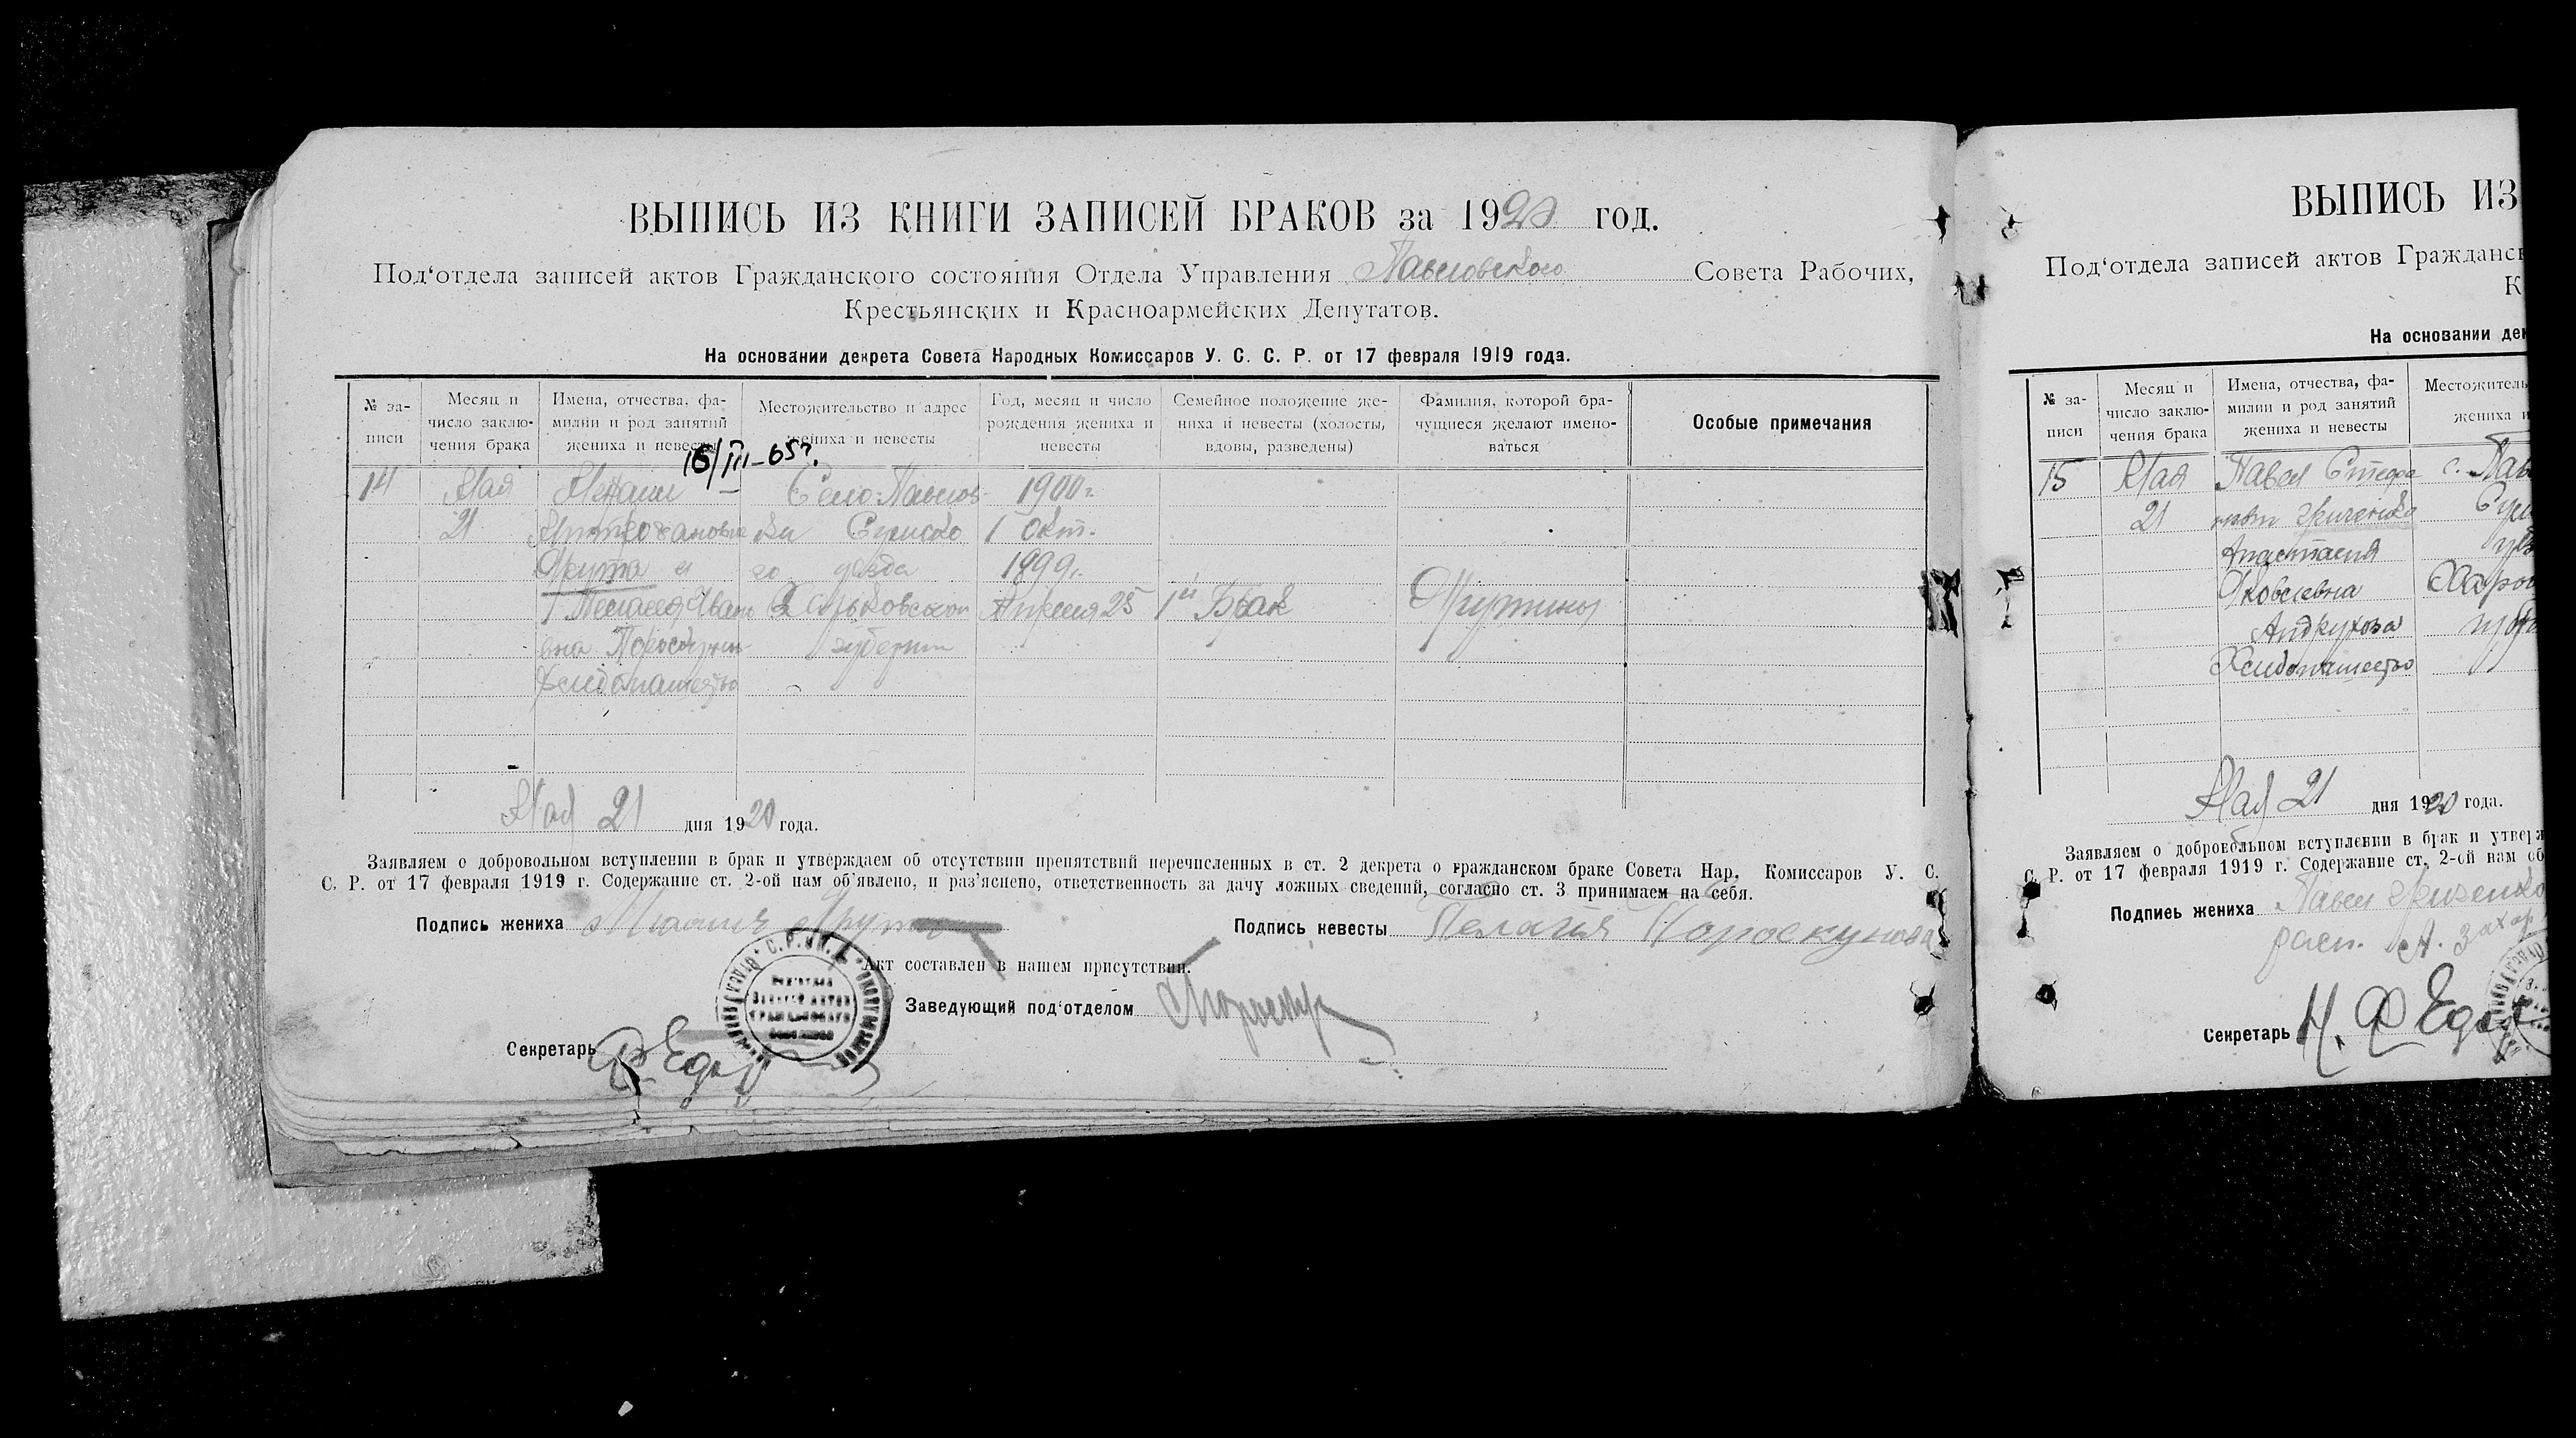 ВЫПИСЬ ИЗ КНИГИ ЗАПИСЕЙ БРАКОВ за 1920 год.
Под‘отдела записей актов Гражданского состояния Отдела Управления Павловского Совета Рабочих,
Крестьянских и Красноармейских Депутатов.
На основании декрета Совета Народных Комиссаров У. С. С. Р. от 17 февраля 1919 года.
№ за-
писи
Месяц и
число заклю-
чения брака
Имена, отчества, фа-
милии и род занятий
жениха и невесты
Местожительство и адрес
жениха и невесты
Год, месяц и число
рождения жениха и
невесты
Семейное положение же-
ниха и невесты (холосты,
вдовы, разведены)
Фамилия, которой бра-
чущиеся желают имено-
ваться
Особые примечания
16/III-65г.
14 Мая Село Павлов- 1900 г.
21 ки Сумско 1 Окт.
и го уезда 1899 г.
Пелагея Ивано Харьковской Апреля 25 1й Брак
вна губернии
Хлебопашество
Мая 21 дня 1920 года.
Заявляем о добровольном вступлении в брак и утверждаем об отсутствии препятствий перечисленных в ст. 2 декрета о гражданском браке Совета Нар. Комиссаров У. С.
С. Р. от 17 февраля 1919 г. Содержание ст. 2-ой нам об‘явлено, и раз‘яснено, ответственность за дачу ложных сведений, согласно ст. 3 принимаем на себя.
Подпись жениха
Подпись невесты Пелагия Пороскунова
Акт составлен в нашем присутствии.
Заведующий под‘отделом
Секретарь
ВЫПИСЬ ИЗ
Под‘отдела записей актов Гражданск
К
На основании дек
№ за-
писи
Месяц и
число заклю-
чения брака
Имена, отчества, фа-
милии и род занятий
жениха и невесты
Местожитель
жениха и
15 Мая Павел Стефа с. Пав
21 Сум
Анастасия уез
Яковлевна Харьк
Андрухова губ
Хлебопашество
Мая 21 дня 1920 года.
Заявляем о добровольном вступлении в брак и утверж
С. Р. от 17 февраля 1919 г. Содержание ст. 2-ой нам об
Подпись жениха Павел
Секретарь